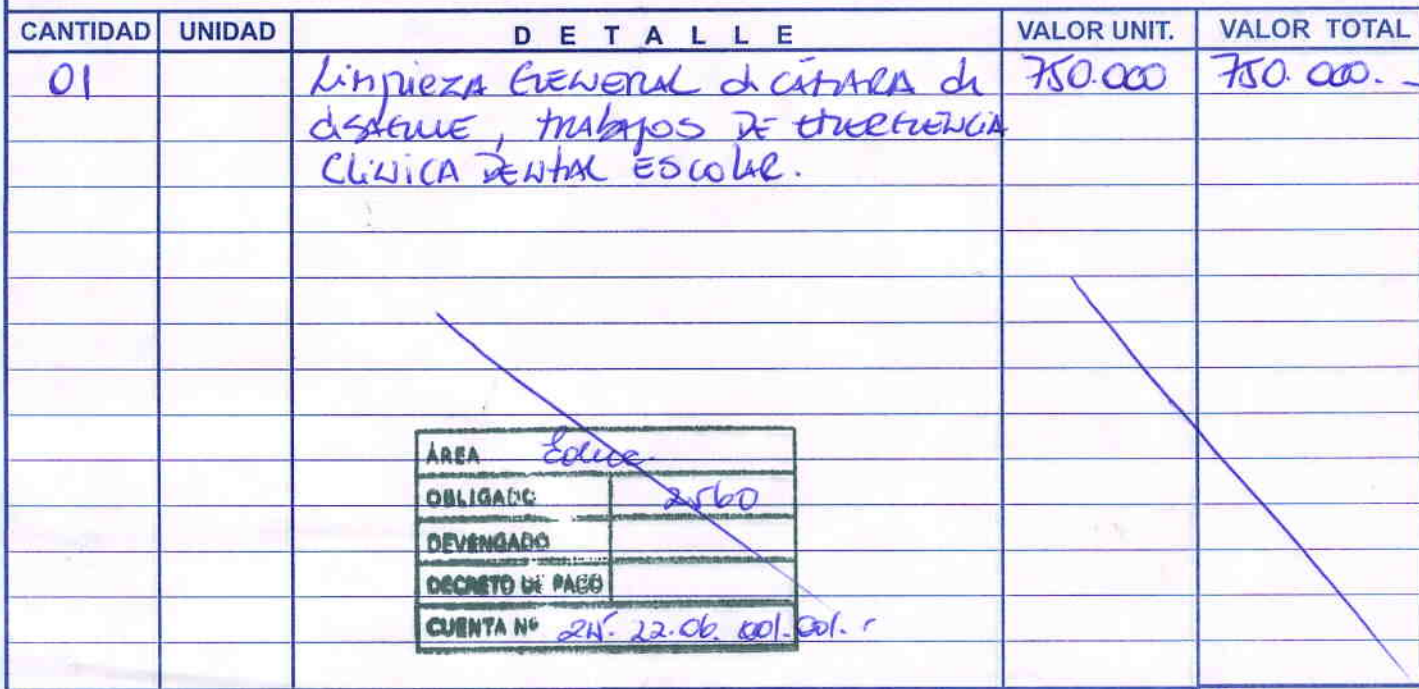 CANTIDAD UNIDAD DETALLE VALOR UNIT. VALOR TOTAL
01 Limpieza GENERAL de CÁMARA de 750.000 750.000.-
desagüe, trabajos DE EMERGENCIA
CLINICA DENTAL ESCOLAR.
ÁREA Educ.
OBLIGADO 2560
DEVENGADO
DECRETO DE PAGO
CUENTA Nº 22.06.001.001.